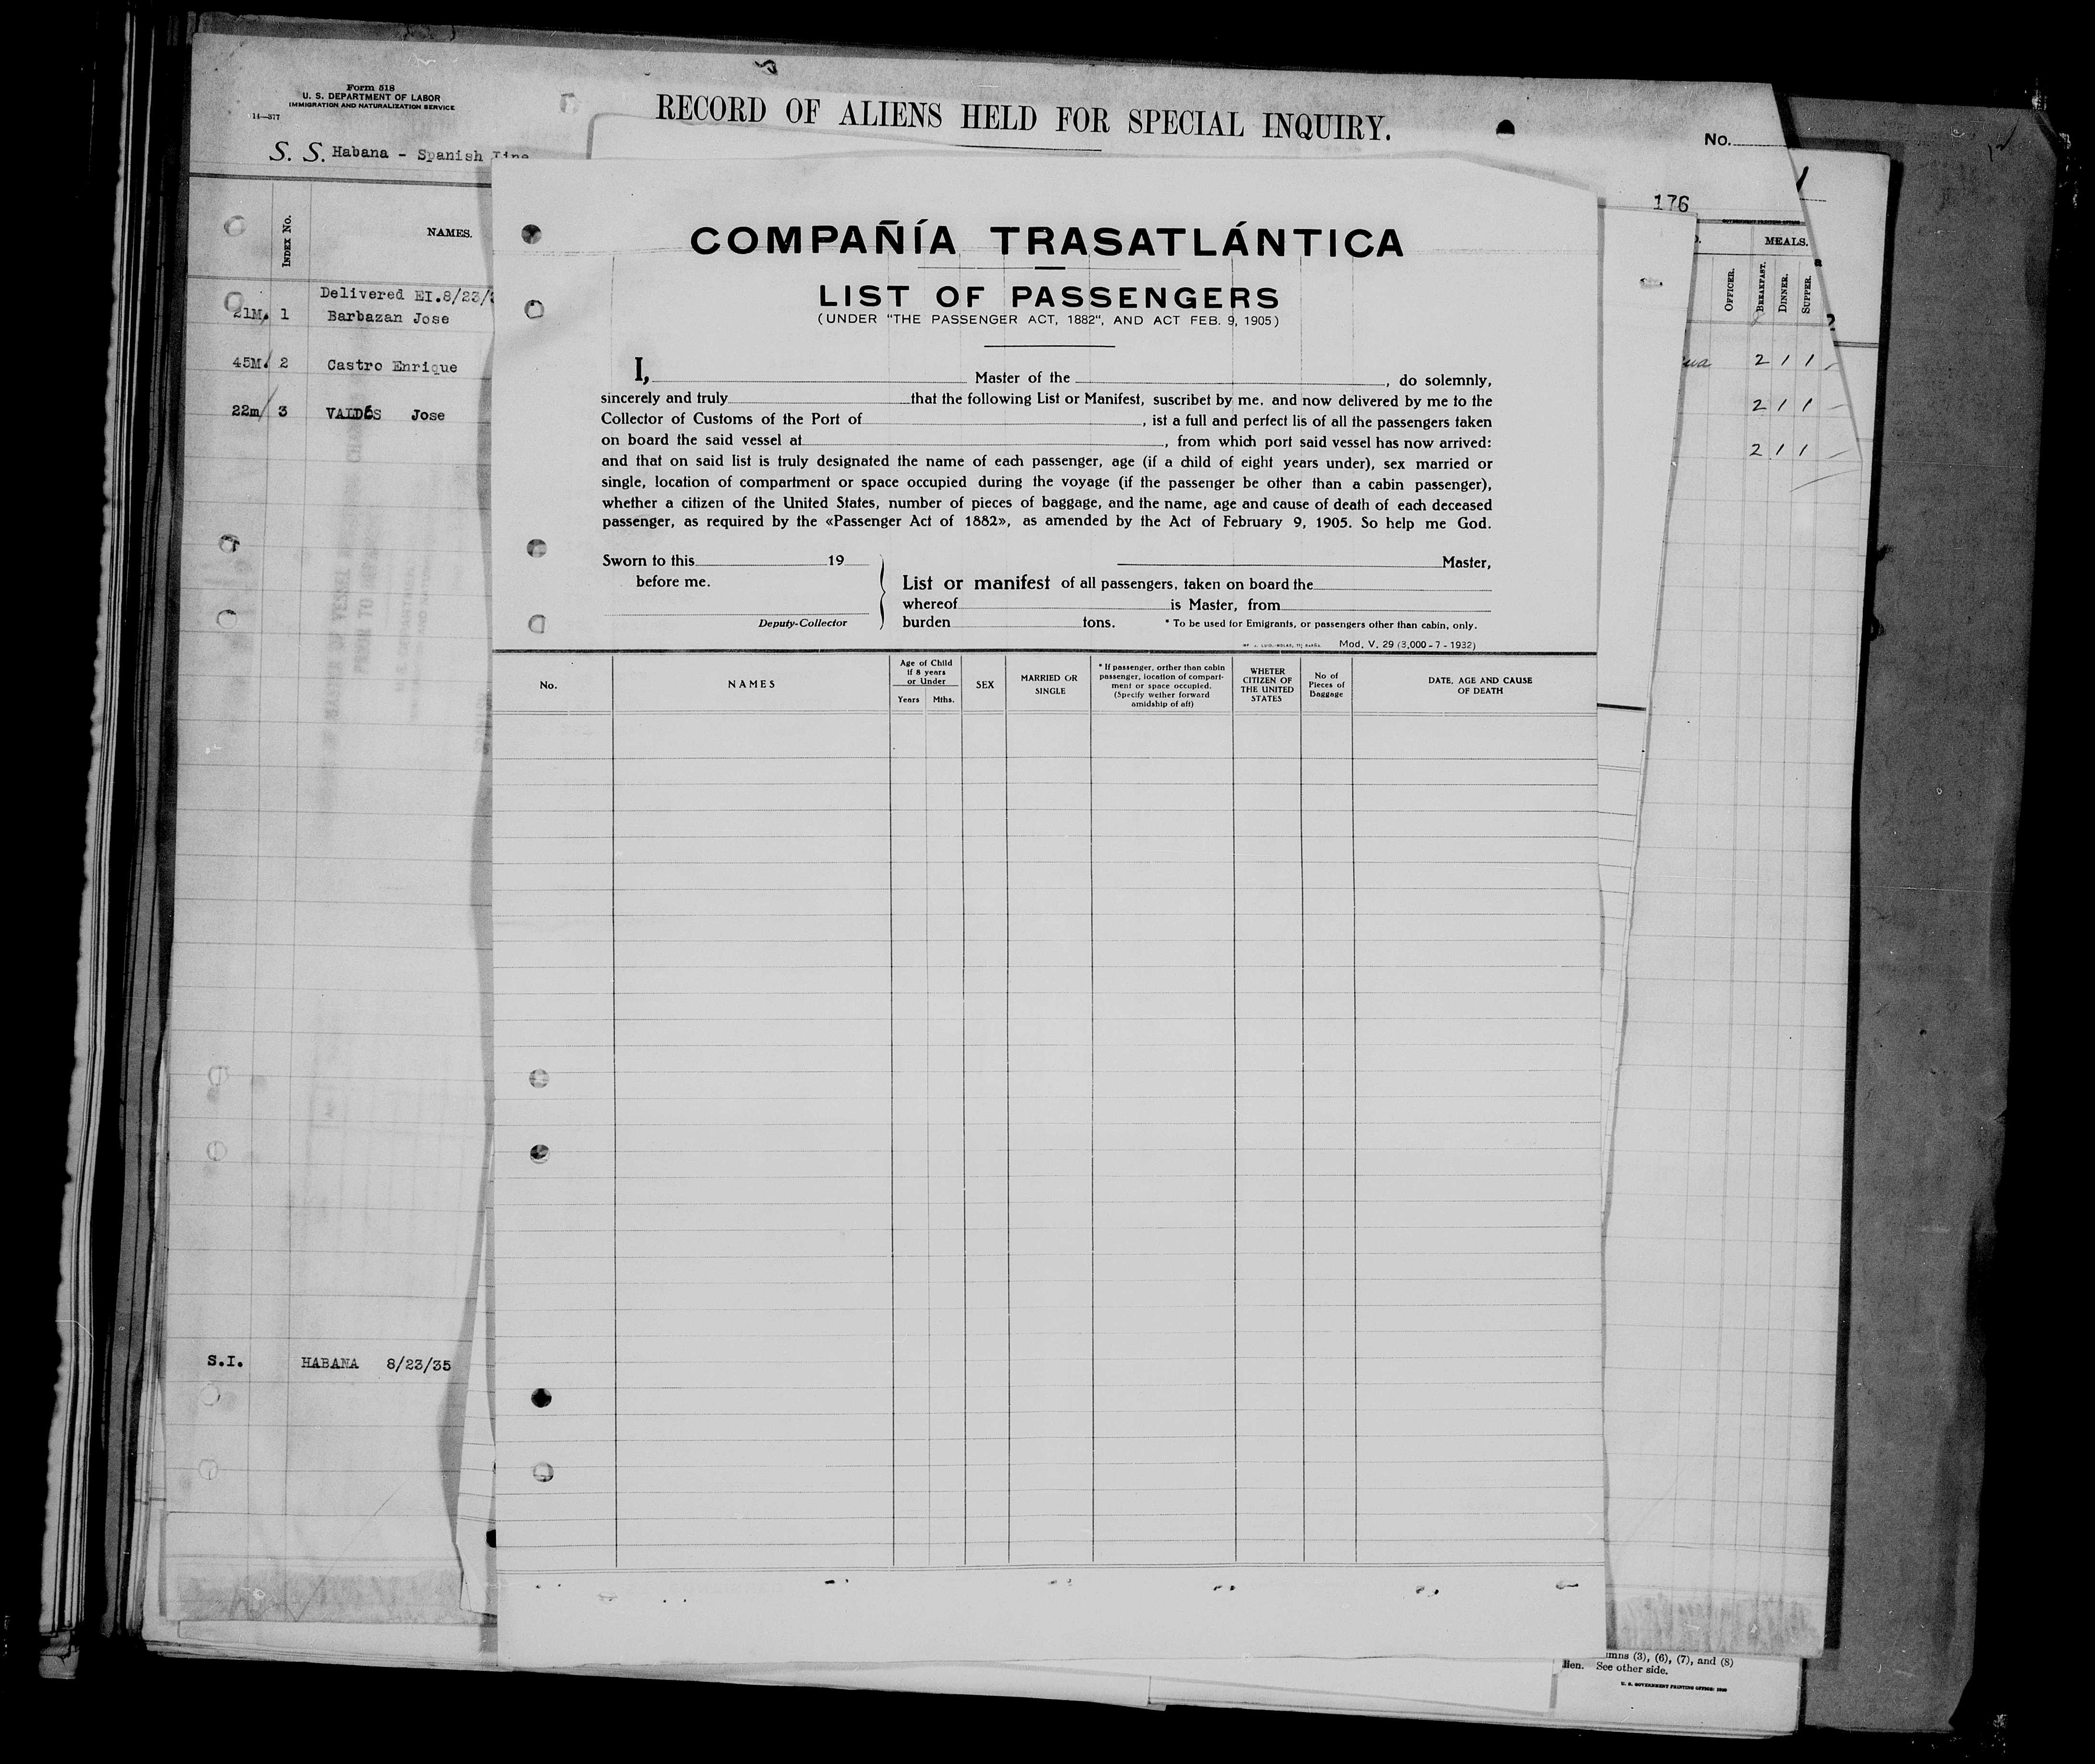 Form 518
U. S. DEPARTMENT OF LABOR
IMMIGRATION AND NATURALIZATION SERVICE
14—377
RECORD OF ALIENS HELD FOR SPECIAL INQUIRY.
No.
S. S. Habana - Spanish Line
176
INDEX No.
NAMES.
OFFICER.
MEALS.
BREAKFAST.
DINNER.
SUPPER.
Delivered EI.8/23/
21M. 1 Barbazan Jose
2 1 1
45M. 2 Castro Enrique
2 1 1
22m 3 VALDES Jose
2 1 1
S.I. HABANA 8/23/35
COMPAÑÍA TRASATLÁNTICA
LIST OF PASSENGERS
(UNDER "THE PASSENGER ACT, 1882", AND ACT FEB. 9, 1905)
I, Master of the , do solemnly,
sincerely and truly that the following List or Manifest, suscribet by me. and now delivered by me to the
Collector of Customs of the Port of , ist a full and perfect lis of all the passengers taken
on board the said vessel at , from which port said vessel has now arrived:
and that on said list is truly designated the name of each passenger, age (if a child of eight years under), sex married or
single, location of compartment or space occupied during the voyage (if the passenger be other than a cabin passenger),
whether a citizen of the United States, number of pieces of baggage, and the name, age and cause of death of each deceased
passenger, as required by the «Passenger Act of 1882», as amended by the Act of February 9, 1905. So help me God.
Sworn to this 19
before me.
Deputy-Collector
Master,
List or manifest of all passengers, taken on board the
whereof is Master, from
burden tons. * To be used for Emigrants, or passengers other than cabin, only.
Mod. V. 29 (3,000 - 7 - 1932)
No.
NAMES
Age of Child
if 8 years
or Under
Years Mths.
SEX
MARRIED OR
SINGLE
* If passenger, orther than cabin
passenger, location of compart-
ment or space occupied.
(Specify wether forward
amidship of aft)
WHETER
CITIZEN OF
THE UNITED
STATES
No of
Pieces of
Baggage
DATE, AGE AND CAUSE
OF DEATH
mns (3), (6), (7), and (8)
See other side.
U. S. GOVERNMENT PRINTING OFFICE: